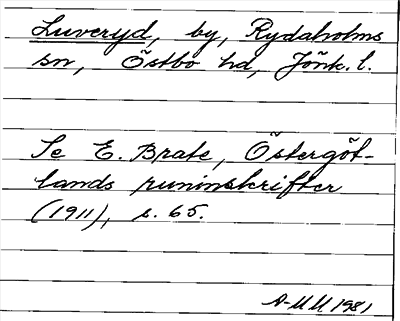 Luveryd, by, Rydaholms
sn, Östbo hd, Jönk. l.
Se E. Brate, Östergöt-
lands runinskrifter
(1911), s. 65.
A-M M 1981